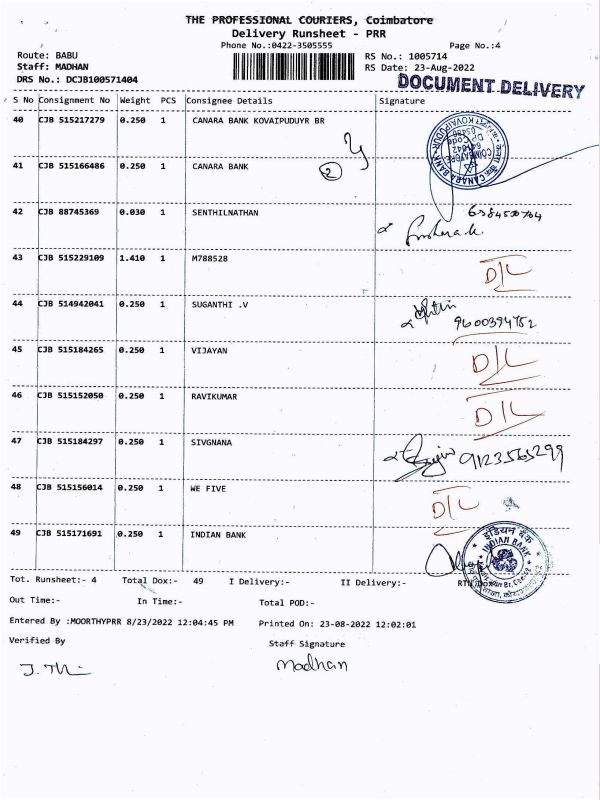 THE PROFESSIONAL COURIERS, Coimbatore
Delivery Runsheet - PRR
Phone No.:0422-3505555 Page No.:4
Route: BABU RS No.: 1005714
Staff: MADHAN RS Date: 23-Aug-2022
DRS No.: DCJB100571404 DOCUMENT DELIVERY
S No Consignment No Weight PCS Consignee Details Signature
40 CJB 515217279 0.250 1 CANARA BANK KOVAIPUDUYR BR
41 CJB 515166486 0.250 1 CANARA BANK 2
42 CJB 88745369 0.030 1 SENTHILNATHAN
43 CJB 515229109 1.410 1 M788528 D/L
44 CJB 514942041 0.250 1 SUGANTHI .V
9600394752
45 CJB 515184265 0.250 1 VIJAYAN D/L
46 CJB 515152050 0.250 1 RAVIKUMAR D/L
47 CJB 515184297 0.250 1 SIVGNANA 9123565299
48 CJB 515156014 0.250 1 WE FIVE D/L
49 CJB 515171691 0.250 1 INDIAN BANK
इंडियन बैंक
INDIAN BANK
Tot. Runsheet:- 4 Total Dox:- 49 I Delivery:- II Delivery:- RTN Dox
Out Time:- In Time:- Total POD:-
Entered By :MOORTHYPRR 8/23/2022 12:04:45 PM Printed On: 23-08-2022 12:02:01
Verified By Staff Signature
Madhan